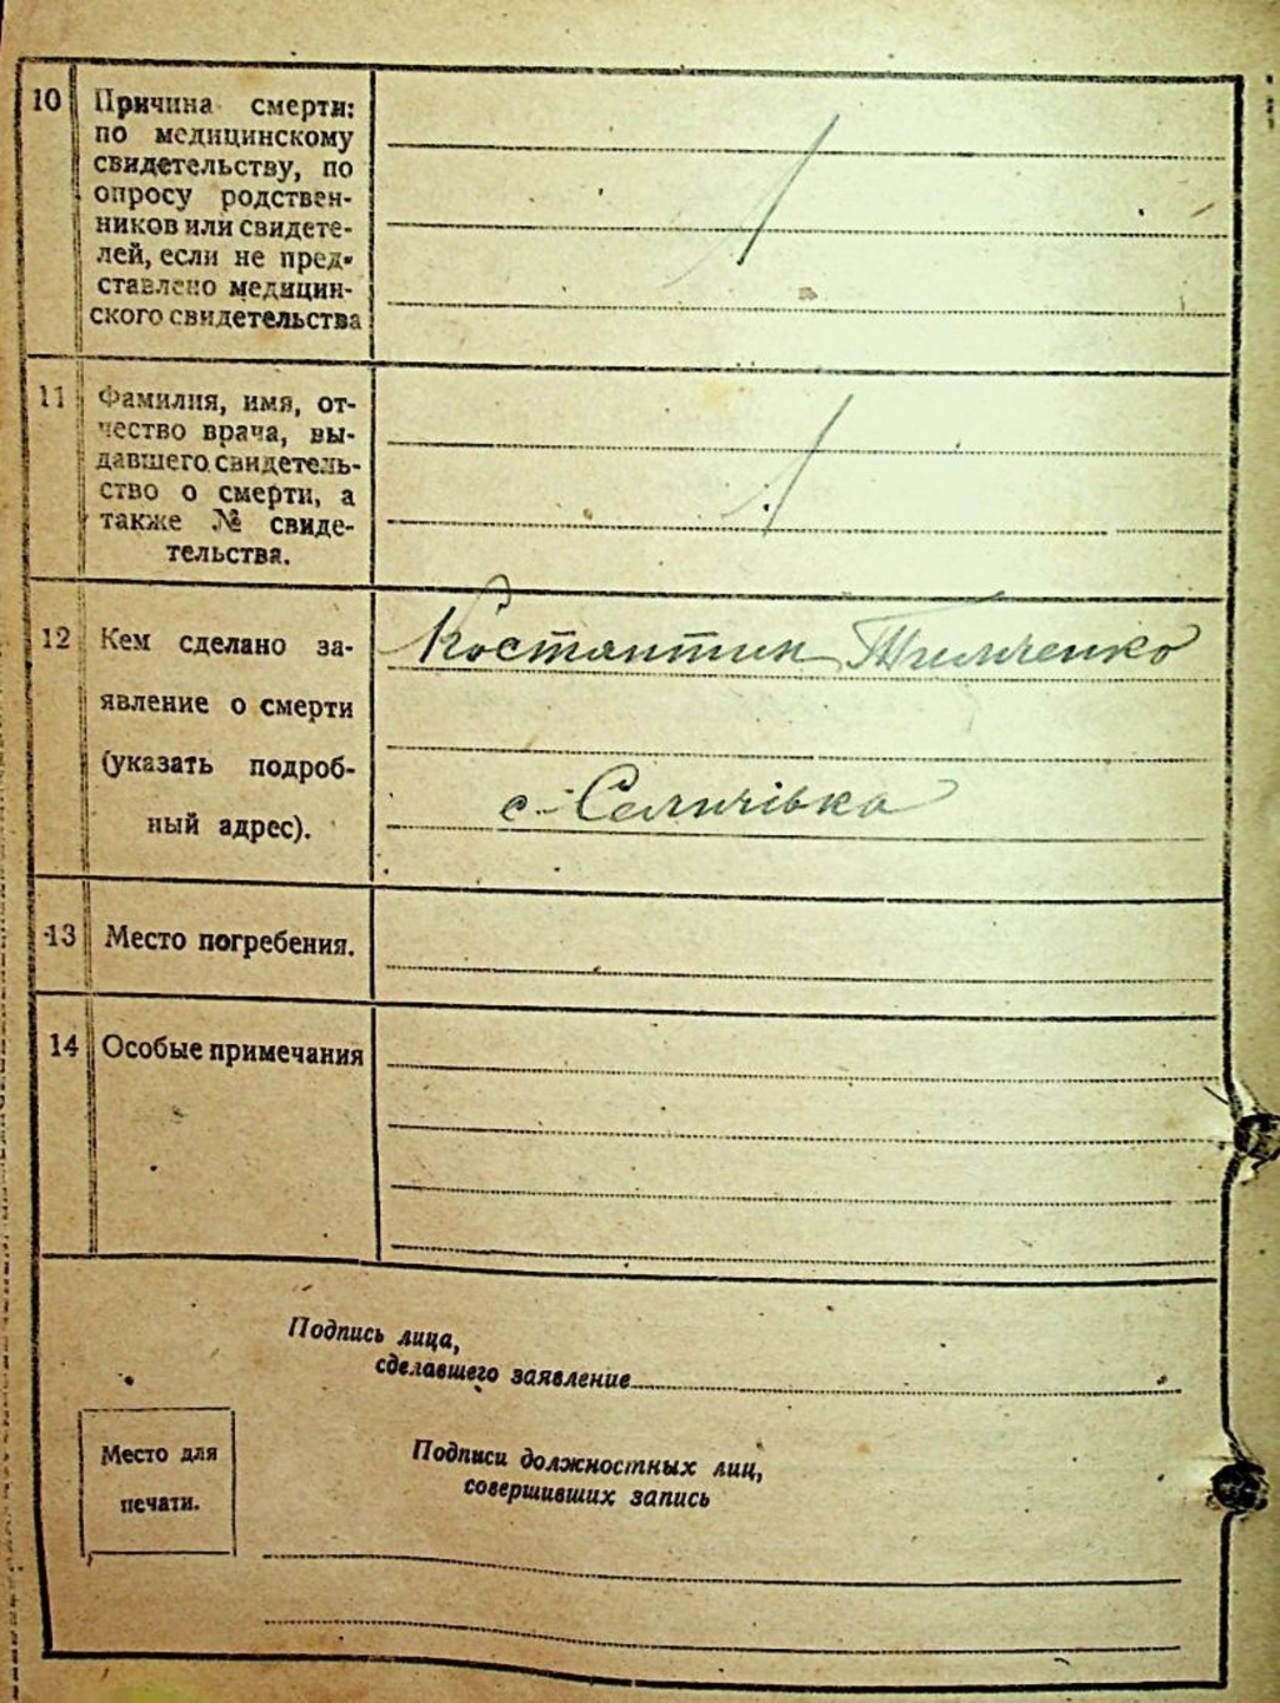 10 Причина смерти:
по медицинскому
свидетельству, по
опросу родствен-
ников или свидете-
лей, если не пред-
ставлено медицин-
ского свидетельства
11 Фамилия, имя, от-
чество врача, вы-
давшего свидетель-
ство о смерти, а
также № свиде-
тельства.
12 Кем сделано за-
явление о смерти
(указать подроб-
ный адрес).
Костянтин
с. Селичівка
13 Место погребения.
14 Особые примечания
Подпись лица,
сделавшего заявление
Место для
печати.
Подписи должностных лиц,
совершивших запись